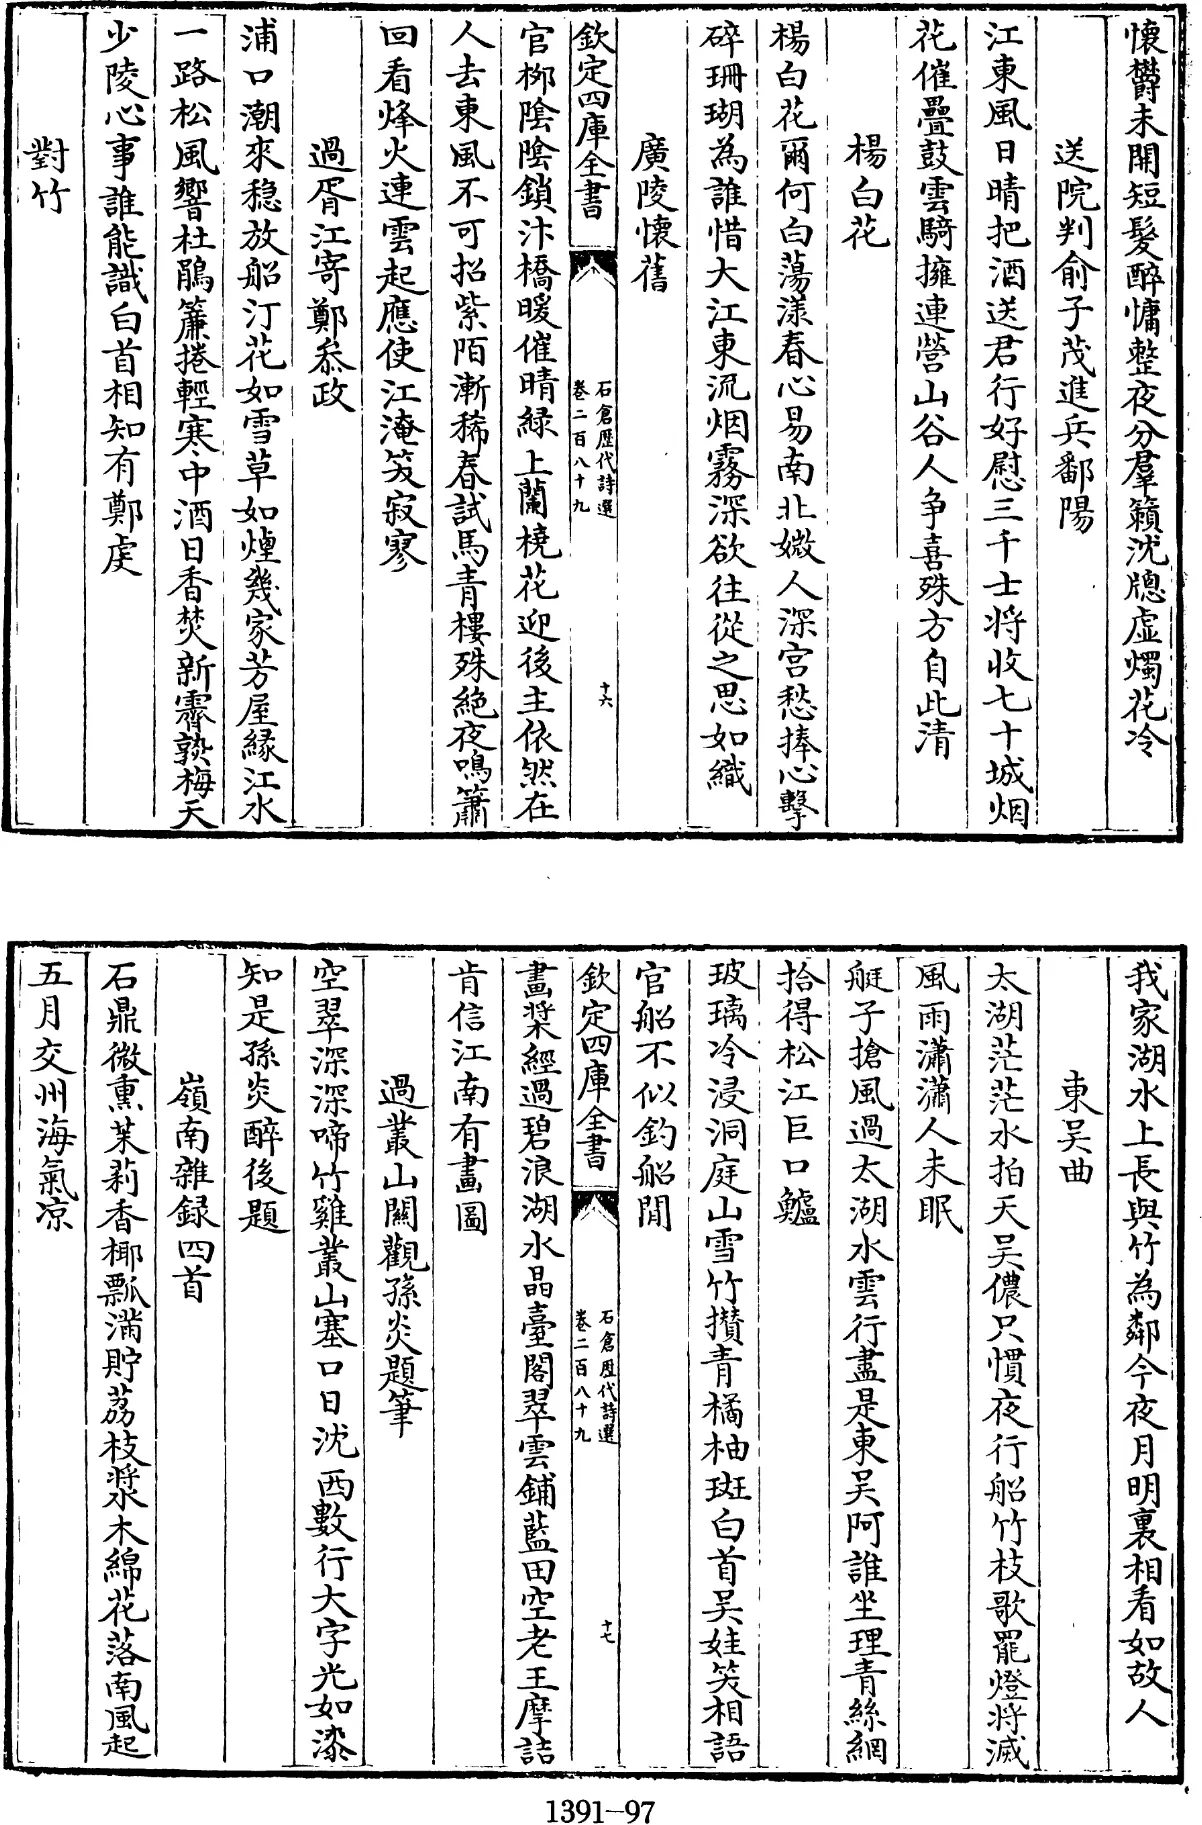 懷鬱未開短髮醉慵整夜分羣籟沈牕虛燭花冷
送院判俞子茂進兵鄱陽
江東風日晴把酒送君行好慰三千士將收七十城烟
花催疊鼓雲騎擁連營山谷人争喜殊方自此清
楊白花
楊白花爾何白蕩漾春心易南北媺人深宫愁捧心擊
碎珊瑚為誰惜大江東流烟霧深欲往從之思如織
廣陵懷舊
欽定四庫全書
石倉歷代詩選
卷二百八十九
十六
官栁陰陰鎖汴橋暖催晴緑上蘭橈花迎後主依然在
人去東風不可招紫陌漸稀春試馬青樓殊絶夜鳴簫
回看烽火連雲起應使江淹笑寂寥
過胥江寄鄭叅政
浦口潮來穏放船汀花如雪草如煙幾家芳屋緣江水
一路松風響杜鵑簾捲輕寒中酒日香焚新霽熟梅天
少陵心事誰能識白首相知有鄭䖍
對竹
我家湖水上長與竹為鄰今夜月明裏相看如故人
東吴曲
太湖茫茫水拍天吴儂只慣夜行船竹枝歌罷燈將滅
風雨瀟瀟人未眠
艇子搶風過太湖水雲行盡是東吴阿誰坐理青絲網
拾得松江巨口鱸
玻璃冷浸洞庭山雪竹攢青橘柚斑白首吴娃笑相語
官船不似釣船閒
欽定四庫全書
石倉歷代詩選
卷二百八十九
十七
畫槳經過碧浪湖水晶臺閣翠雲鋪藍田空老王摩詰
肯信江南有畫圖
過叢山關觀孫炎題筆
空翠深深啼竹雞叢山塞口日沈西數行大字光如漆
知是孫炎醉後題
嶺南雜録四首
石鼎微熏茉莉香椰瓢滿貯荔枝漿木綿花落南風起
五月交州海氣凉
1391-97